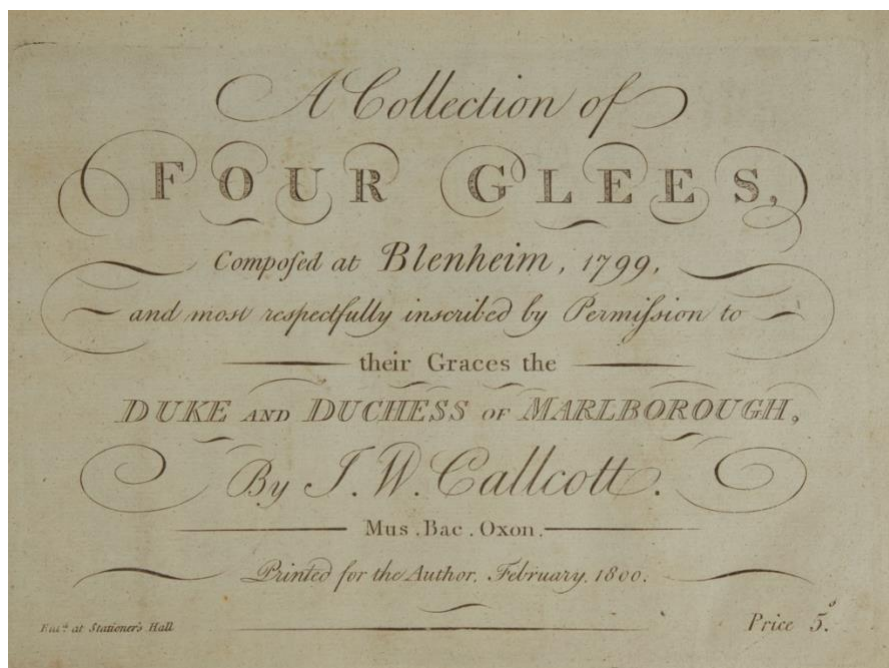 A Collection of
FOUR GLEES,
Compoſed at Blenheim, 1799,
and most respectfully inscribed by Permiſsion to
their Graces the
DUKE AND DUCHESS OF MARLBOROUGH,
By J. W. Callcott.
Mus. Bac. Oxon.
Printed for the Author, February, 1800.
Ent.d at Stationer's Hall
Price 5.s